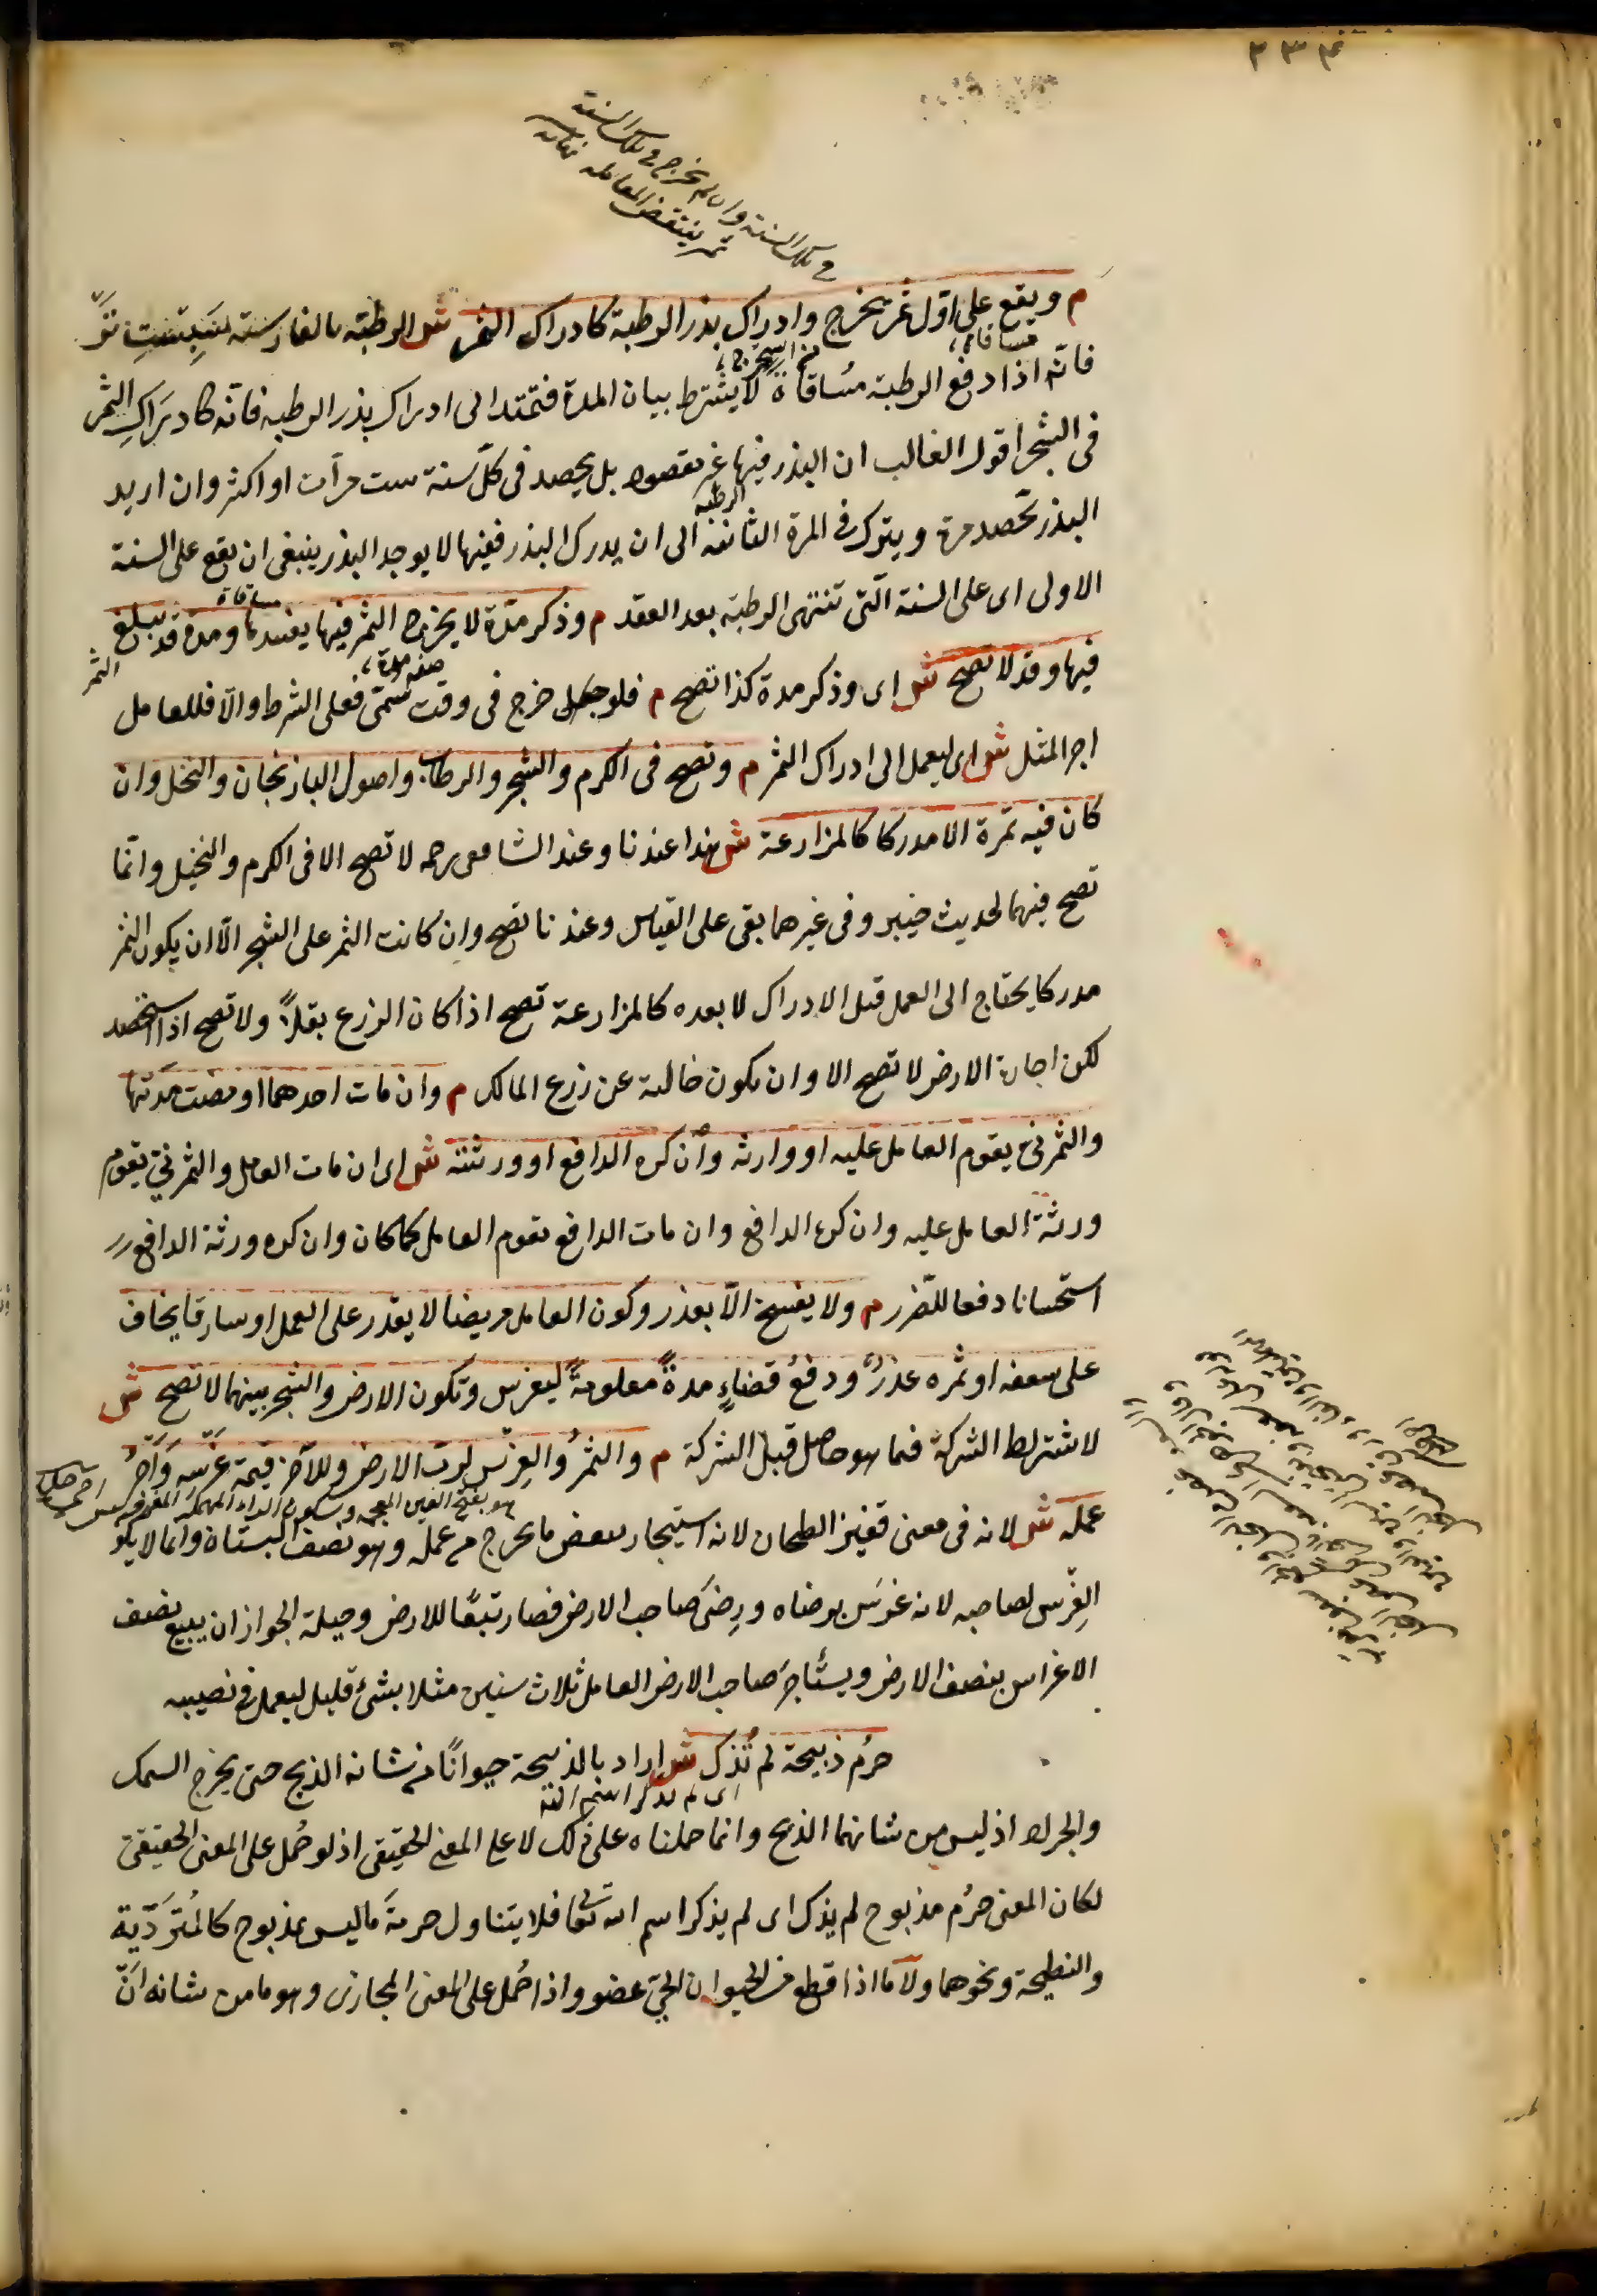 ٢٣٤
في تلك السنة وان لم يخرج في تلك السنة
ثمر ينتقض المعاملة
م ويقع على اول ثمر يخرج وادراك بذر الرطبة كادراك الثمر ش الرطبة بالفارسية سپست تر
فانه اذا دفع الرطبة مساقاة لا يشترط بيان المدة فتمتد الى ادراك بذر الرطبة فانه كادراك الثمر
في الشجر اقول الغالب ان البذر فيها غير مقصود بل يحصد في كل سنة ست مرات او اكثر وان اريد
البذر تحصد مرة ويترك في المرة الثانية الى ان يدرك البذر ففيها لا يوجد البذر ينبغي ان يقع على السنة
الرطبة
الاولى اى على السنة التي تنتهى الرطبة بعد العقد م وذكر مدة لا يخرج الثمر فيها يفسدها ومدة قد يبلغ
مساقاة
الثمر
فيها وقد لا تصح ش اى وذكر مدة كذا تصح م فلو خرج في وقت سمى فعلى الشرط والا فللعامل
صفة مدة
اجر المثل ش اى ليعمل الى ادراك الثمر م وتصح في الكرم والشجر والرطاب واصول الباذنجان والنخل وان
كان فيه ثمرة الا مدركا كالمزارعة ش هذا عندنا وعند الشافعى رحمه لا تصح الا في الكرم والنخيل وانما
تصح فيهما لحديث خيبر وفي غيرهما بقى على القياس وعندنا تصح وان كانت الثمر على الشجر الا ان يكون الثمر
مدركا يحتاج الى العمل قبل الادراك لا بعده كالمزارعة تصح اذا كان الزرع بقلا ولا تصح اذا استحصد
لكن اجارة الارض لا تصح الا وان يكون خالية عن زرع المالك م وان مات احدهما او مضت مدتها
والثمر نئ يقوم العامل عليه او وارثه وان كره الدافع او ورثته ش اى ان مات العامل والثمر نئ يقوم
ورثة العامل عليه وان كره الدافع وان مات الدافع يقوم العامل كما كان وان كره ورثة الدافع
استحسانا دفعا للضرر م ولا يفسخ الا بعذر وكون العامل مريضا لا يقدر على العمل او سارقا يخاف
على سعفه او ثمره عذر ودفع فضاء مدة معلومة ليغرس وتكون الارض والشجر بينهما لا تصح ش
لاشتراط الشركة فيما هو حاصل قبل الشركة م والثمر والغرس لرب الارض وللآخر قيمة غرسه واجر
عمله ش لانه في معنى قفيز الطحان لانه استيجار ببعض ما يخرج من عمله وهو نصف البستان وانما لا يكون
هو بفتح الغين المعجمة وسكون الراء المهملة
الغرس لصاحبه لانه غرس برضاه ورضى صاحب الارض فصار تبعا للارض وحيلة الجواز ان يبيع نصف
الاغراس بنصف الارض ويستأجر صاحب الارض العامل ثلاث سنين مثلا بشئ قليل ليعمل في نصيبه
حرم ذبيحة لم تذك ش اراد بالذبيحة حيوانا من شانه الذبح حتى يخرج السمك
اى لم يذكر اسم الله
والجراد اذ ليس من شانهما الذبح وانما حملناه على ذلك لا على المعنى الحقيقى اذ لو حمل على المعنى الحقيقى
لكان المعنى حرم مذبوح لم يذك اى لم يذكر اسم الله تعالى فلا يتناول حرمة ما ليس بمذبوح كالمتردية
والنطيحة ونحوهما ولا ما اذا قطع من الحيوان الحى عضو واذا حمل على المعنى المجازى وهو ما من شانه ان